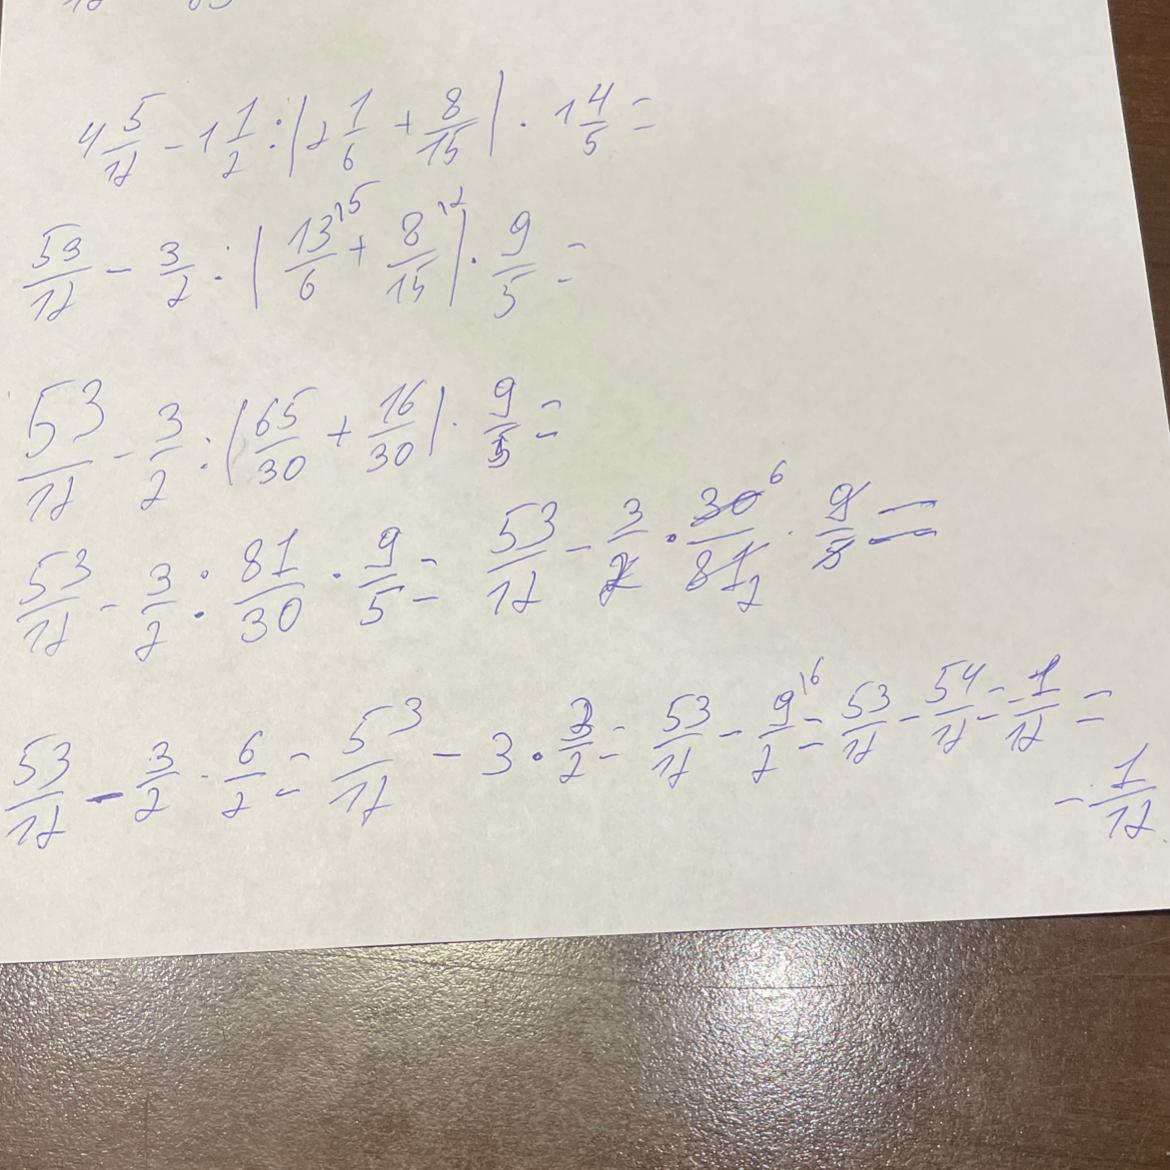 4 5/12 - 1 1/2 : (2 1/6 + 8/15) · 1 4/5 =
53/12 - 3/2 : (13/6 \5 + 8/15 \2) · 9/5 =
53/12 - 3/2 : (65/30 + 16/30) · 9/5 =
53/12 - 3/2 : 81/30 · 9/5 = 53/12 - 3/2 · 30 6/81 2 · 9/5 =
53/12 - 3/2 · 6/2 = 53/12 - 3 · 3/2 = 53/12 - 9/2 \6 = 53/12 - 54/12 = -1/12 =
- 1/12